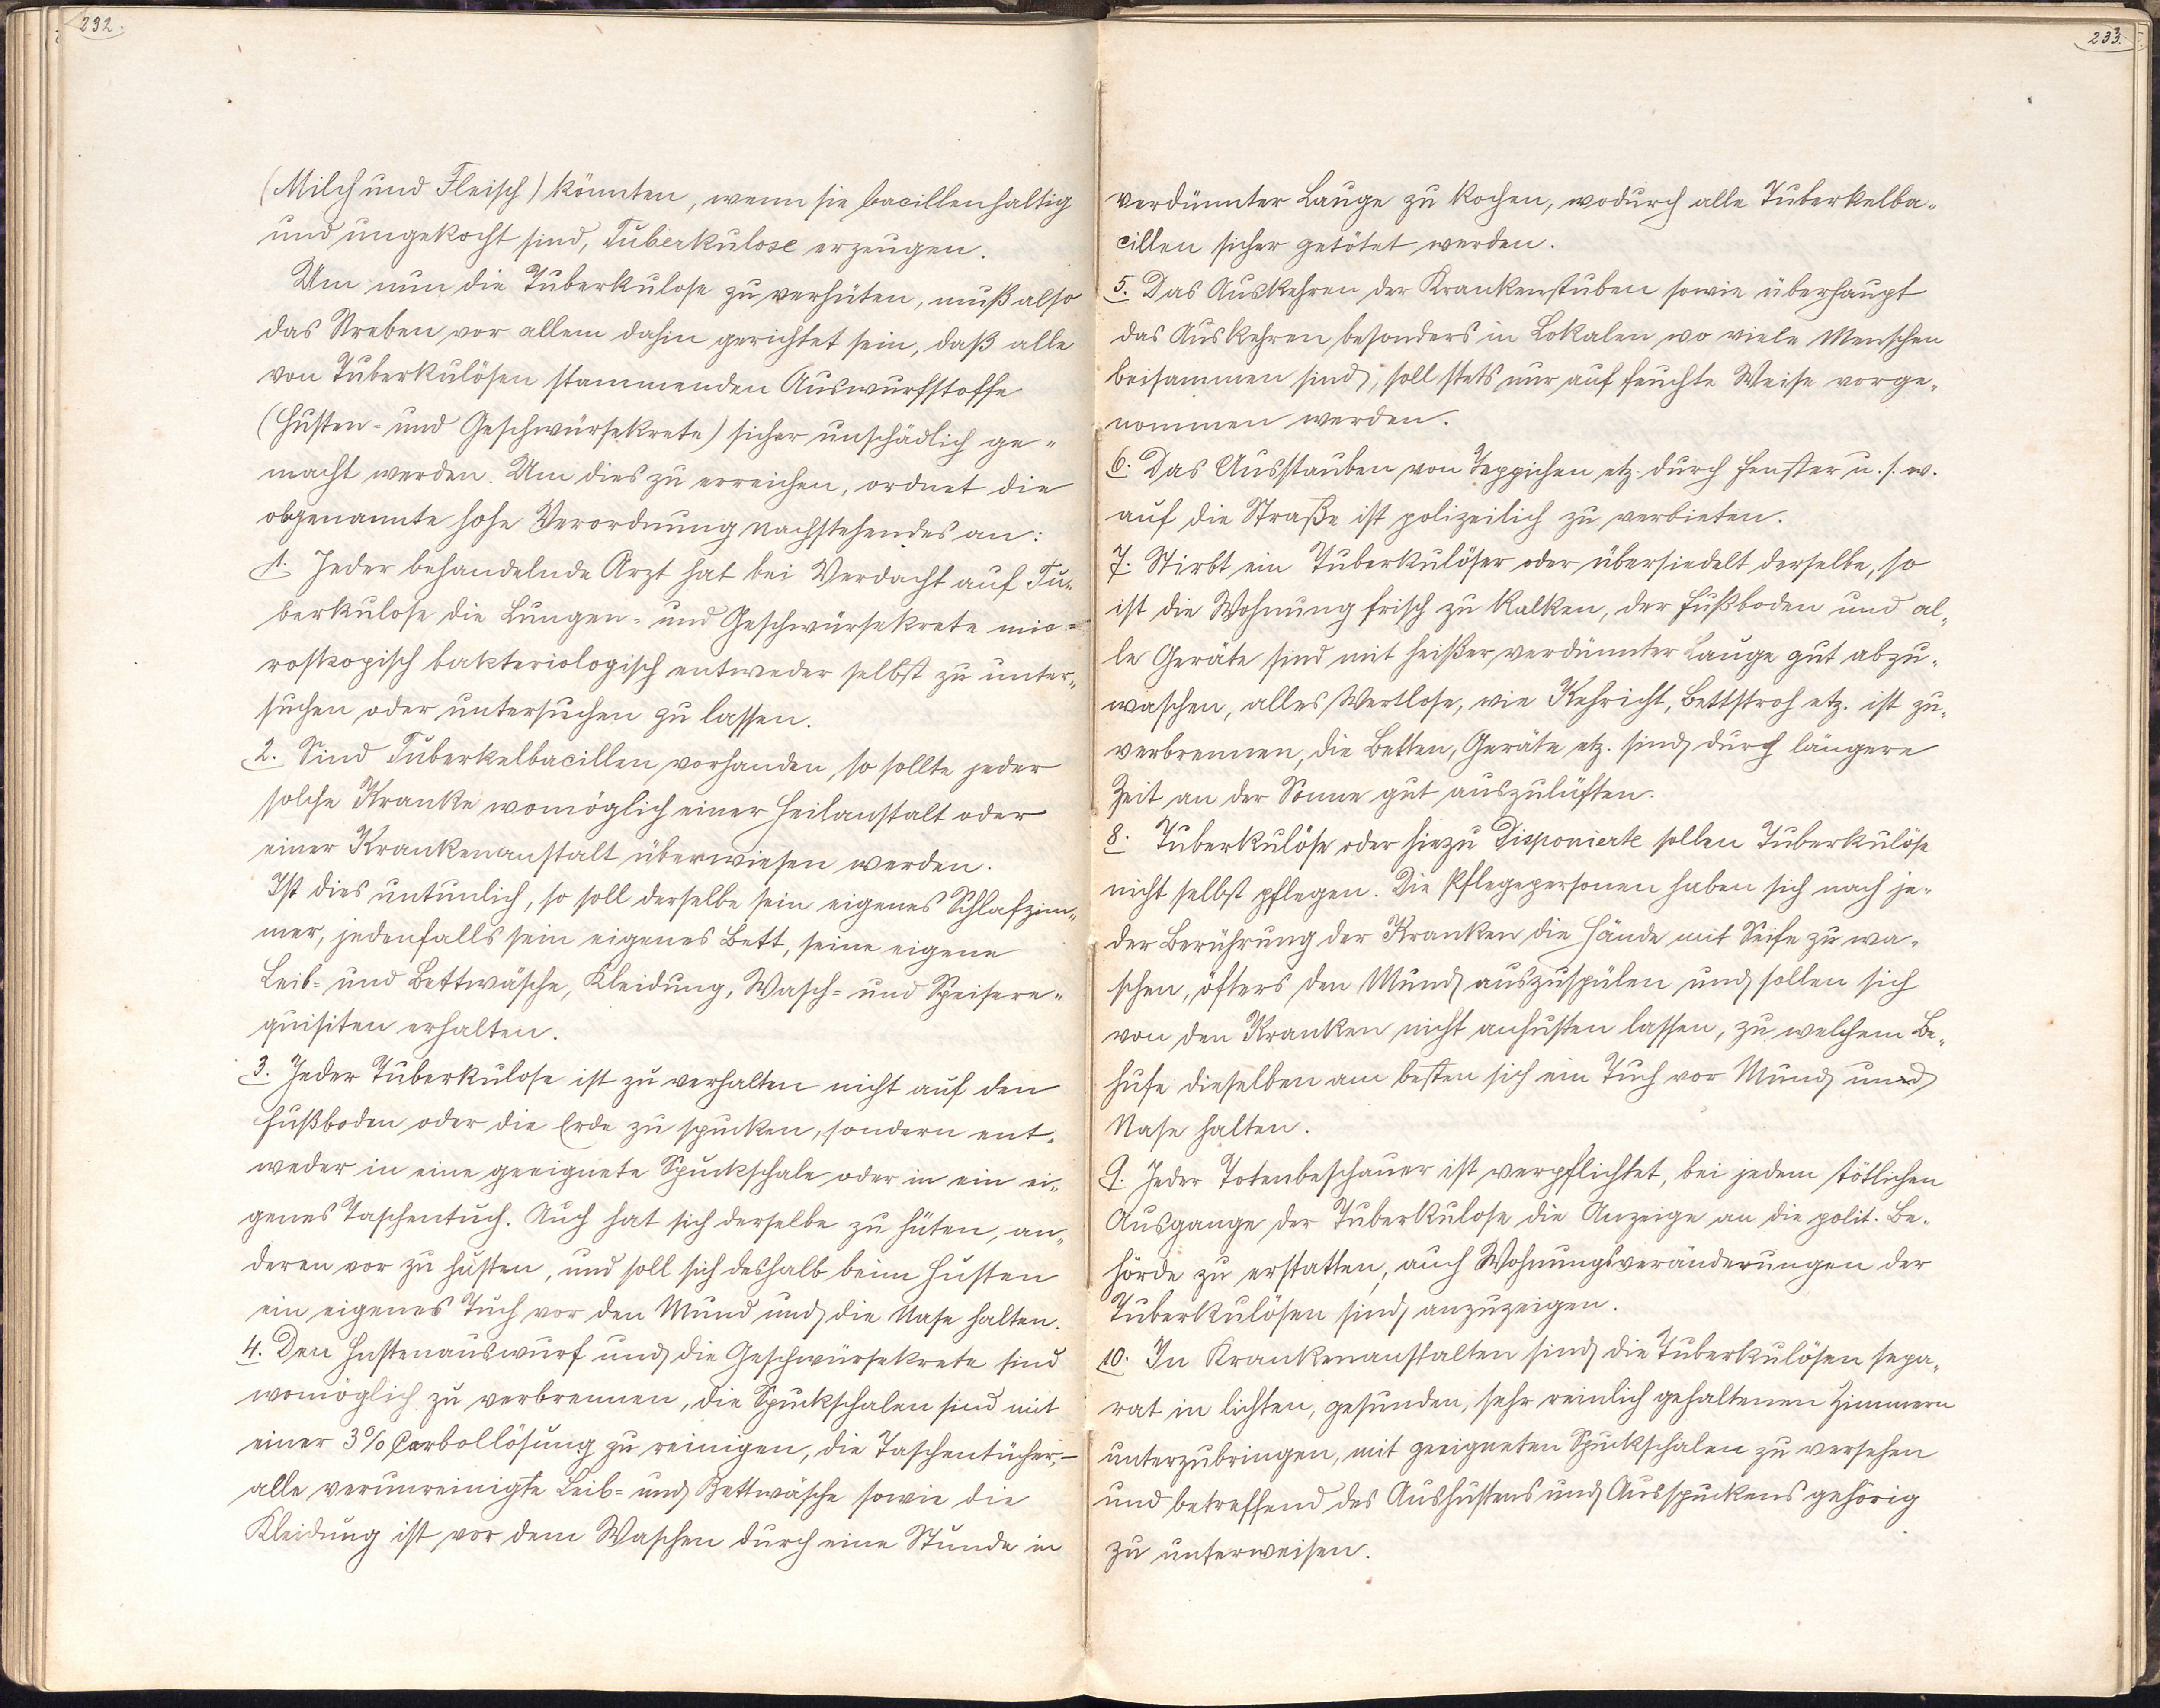 232.
(Milch und Fleisch) könnten, wenn sie bacillenhaltig
und ungekocht sind, Tuberkulose erzeugen.
Um nun die Tuberkulose zu verhüten, muß also
das Streben vor allem dahin gerichtet sein, daß alle
von Tuberkulösen stammenden Auswurfstoffe
(Husten- und Geschwürsekrete) sicher unschädlich ge-
macht werden. Um dies zu erreichen, ordnet die
obgenannte hohe Verordnung nachstehendes an:
1. Jeder behandelnde Arzt hat bei Verdacht auf Tu-
berkulose die Lungen- und Geschwürsekrete mic-
roskopisch bakteriologisch entweder selbst zu unter-
suchen oder untersuchen zu lassen.
2. Sind Tuberkelbacillen vorhanden, so sollte jeder
solche Kranke womöglich einer Heilanstalt oder
einer Krankenanstalt überwiesen werden.
Ist dies untunlich, so soll derselbe sein eigenes Schlafzim-
mer, jedenfalls sein eigenes Bett, seine eigene
Leib- und Bettwäsche, Kleidung, Wasch- und Speisere-
quisiten erhalten.
3. Jeder Tuberkulose ist zu verhalten nicht auf den
Fußboden oder die Erde zu spucken, sondern ent-
weder in eine geeignete Spuckschale oder in ein ei-
genes Taschentuch. Auch hat sich derselbe zu hüten, an-
deren vor zu husten, und soll sich deshalb beim Husten
ein eigenes Tuch vor den Mund und die Nase halten.
4. Den Hustenauswurf und die Geschwürsekrete sind
womöglich zu verbrennen, die Spuckschalen sind mit
einer 3% Carbollösung zu reinigen, die Taschentücher,-
alle verunreinigte Leib- und Bettwäsche sowie die
Kleidung ist vor dem Waschen durch eine Stunde in
233.
verdünnter Lauge zu kochen, wodurch alle Tuberkelba-
cillen sicher getötet werden.
5. Das Auskehren der Krankenstuben sowie überhaupt
das Auskehren besonders in Lokalen wo viele Menschen
beisammen sind, soll stets nur auf feuchte Weise vorge-
nommen werden.
6. Das Ausstauben von Teppichen etz. durch Fenster u. s. w.
auf die Straße ist polizeilich zu verbieten.
7. Stirbt ein Tuberkulöser oder übersiedelt derselbe, so
ist die Wohnung frisch zu kalken, der Fußboden und al-
le Geräte sind mit heißer verdünnter Lauge gut abzu-
waschen, alles Wertlose, wie Kehricht, Bettstroh etz. ist zu-
verbrennen, die Betten, Geräte etz. sind durch längere
Zeit an der Sonne gut auszulüften.
8. Tuberkulöse oder hiezu Disponierte sollen Tuberkulöse
nicht selbst pflegen. Die Pflegepersonen haben sich nach je-
der Berührung der Kranken die Hände mit Seife zu wa-
schen, öfters den Mund auszuspülen und sollen sich
von den Kranken nicht anhusten lassen, zu welchem Be-
hufe dieselben am besten sich ein Tuch vor Mund und
Nase halten.
9. Jeder Totenbeschauer ist verpflichtet, bei jedem tötlichen
Ausgange der Tuberkulose die Anzeige an die polit. Be-
hörde zu erstatten, auch Wohnungsveränderungen der
Tuberkulösen sind anzuzeigen.
10. In Krankenanstalten sind die Tuberkulösen sepa-
rat in lichten, gesunden, sehr reinlich gehaltenen Zimmern
unterzubringen, mit geeigneten Spuckschalen zu versehen
und betreffend des Aushustens und Ausspuckens gehörig
zu unterweisen.